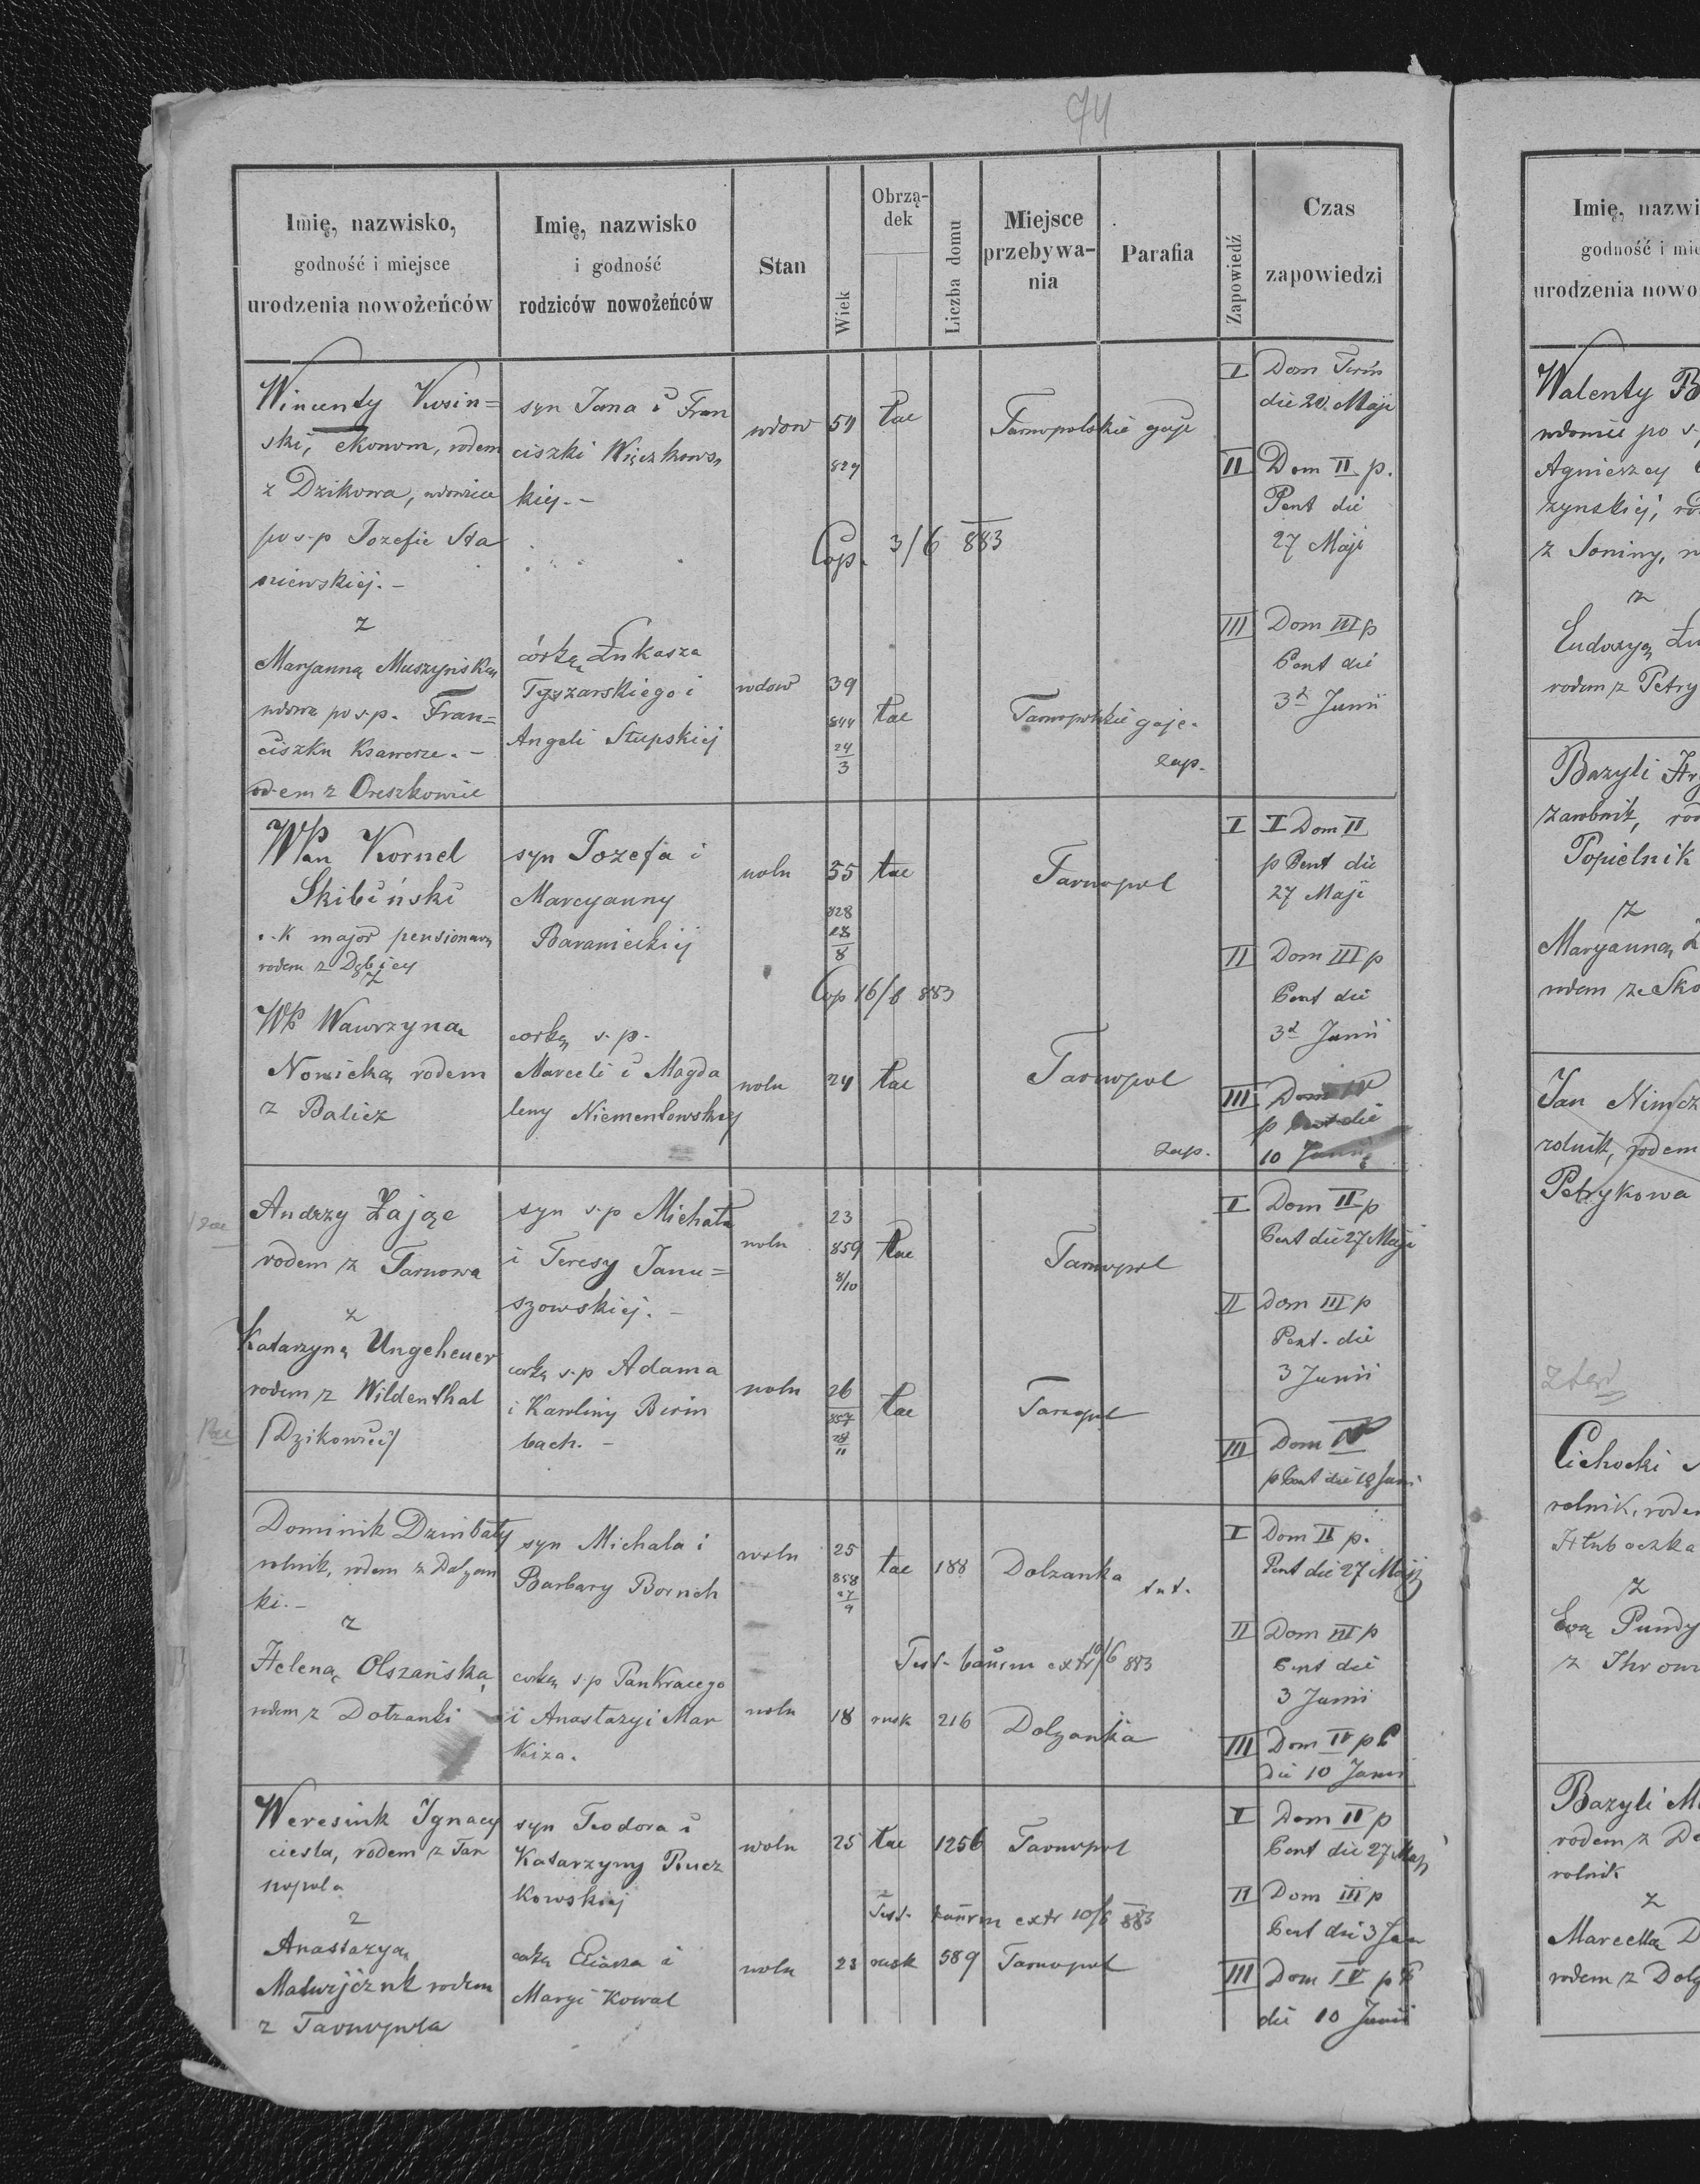 74
Imię, nazwisko,
godność i miejsce
urodzenia nowożeńców
Imię, nazwisko
i godność
rodziców nowożeńców
Stan
Wiek
Obrzą-
dek
Liczba domu
Miejsce
przebywa-
nia
Parafia
Zapowiedź
Czas
zapowiedzi
Wincenty Kusin=
ski, ekonom, rodem
z Dzikowa, wdowiec
po s.p Jozefie Sta
niewskiej.-
z
Maryanną Muszyńską
wdowa po s.p. Fran=
ciszku Ksawerze.-
rodem z Oreszkowiec
syn Jana i Fran
ciszki Więczkows
kiej.-
córką Łukasza
Tyszarskiego i
Angeli Słupskiej
wdow
54
829
tac
Tarnopolskie gaje
Cop. 3/6 883
wdow
39
844
24
3
tac
Tarnopolskie gaje.
zap.
I Dom Trin
die 20. Maji
II Dom II p.
Pent die
27 Maji
III Dom III p
Pent die
3 Junii
WPan Kornel
Skibiński
k major pensionow
rodem z Dębicy
z
WP Wawrzyną
Nowicką rodem
z Balicz
syn Jozefa i
Marcyanny
Baranieckiej
corką s.p.
Marceli i Magda
leny Niementowskiej
woln
55
828
28
8
tac
Tarnopol
Cop 16/6 883
woln
24
tac
Tarnopol
zap.
I I Dom II
p Pent die
27 Maji
II Dom III p
Pent die
3 Junii
III Dom IV
p Pent die
10 Junii
Andrzy Zając
rodem z Tarnowa
z
Katarzyną Ungeheuer
rodem z Wildenthal
(Dzikowiec)
syn s.p Michała
i Teresy Janu=
szowskiej.-
corką s.p Adama
i Karoliny Birin
bach.-
woln
23
859
8/10
tac
Tarnopol
woln
26
857
28
11
tac
Tarnopol
I Dom II p
Pent die 27 Maji
II Dom III p
Pent. die
3 Junii
III Dom IV
p Pent die 10 Juni
Dominik Dzinbaty
rolnik, rodem z Dolzan
ki.-
z
Heleną Olszańską
rodem z Dołzanki
syn Michala i
Barbary Bornch
corką s.p Pankracego
i Anastazyi Mar
kiza.
woln
25
858
27
9
tac
188
Dolzanka
tut.
Test. bannm extr 10/6 883
woln
18
rusk
216
Dolzanka
I Dom II p.
Pent die 27 Maji
II Dom III p
Pent die
3 Junii
III Dom IV p P
die 10 Junii
Weresiuk Ignacy
ciesla, rodem z Tar
nopola
z
Anastazyą
Matwijcznk rodem
z Tarnopola
syn Teodora i
Katarzyny Rucz
kowskiej
corką Eliasza i
Maryi Kowal
woln
25
tac
1256
Tarnopol
Test. bannm extr 10/6 883
woln
23
rusk
589
Tarnopol
I Dom II p
Pent die 27 Maji
II Dom III p
Pent die 3 Jun
III Dom IV p P
die 10 Junii
Imię, nazwi
godność i mie
urodzenia nowo
Walenty B
wdowiec po s.
Agnieszcy
zynskiej, ro
z Soniny,
z
Eudozyą Lu
rodem z Petry
Bazyli Hr
zarobnik, rod
Popielnik
z
Maryanną
rodem ze Sko
Jan Nimcz
rolnik, rodem
Petrykowa
Cichocki
rolnik, rodem
Hłuboczka
z
Ewą Pundy
z Ihrow
Bazyli M
rodem z Do
rolnik
z
Marcellą D
rodem z Dolz